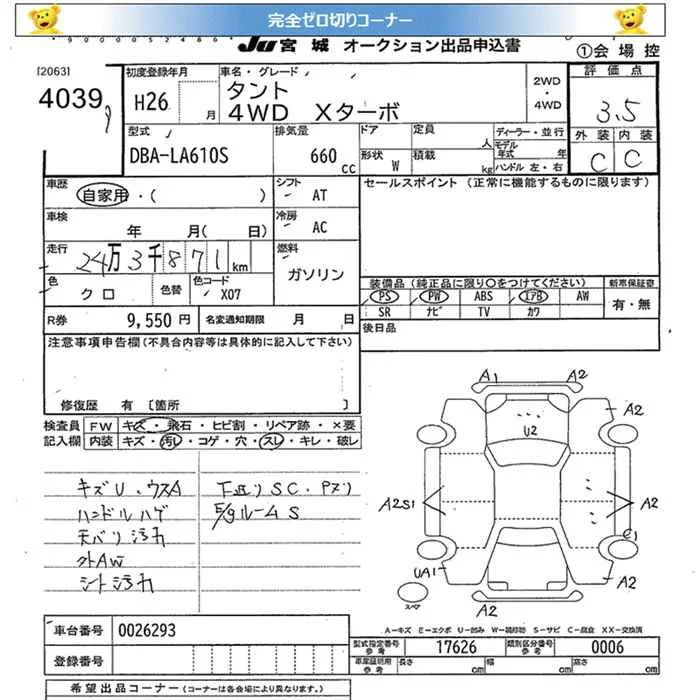 完全ゼロ切りコーナー
JU 宮城 オークション出品申込書
①会場控
[2063]
4039
初度登録年月
H26 月
車名・グレード
タント
4WD Xターボ
2WD
・
4WD
評価点
3.5
外装 内装
C C
型式
DBA-LA610S
排気量
660 cc
ドア
定員 人
ディーラー・並行
形状 W
積載 kg
モデル年式 年
ハンドル 左・右
車歴
自家用・( )
シフト
AT
セールスポイント (正常に機能するものに限ります)
車検
年 月( 日)
冷房
AC
走行
24万3千871km
燃料
ガソリン
色
クロ
色替
色コード
X07
装備品 (純正品に限り○をつけてください)
新車保証書
PS PW ABS エアB AW
SR ナビ TV カワ
有・無
R券 9,550円
名変通知期限 月 日
後日品
注意事項申告欄(不具合内容等は具体的に記入して下さい)
修復歴 有 〔箇所 〕
検査員 FW キズ・飛石・ヒビ割・リペア跡・×要
記入欄 内装 キズ・汚レ・コゲ・穴・スレ・キレ・破レ
キズU・ウスA
ハンドルハゲ
天バリ汚れ
外AW
シート汚れ
下廻りSC・Pズリ
E/gルームS
A1 A2
A2
U2
A2S1
A2
C1
UA1
A2
A2
スペア
A-キズ E-エクボ U-凹み W-補修跡 S-サビ C-腐食 XX-交換済
車台番号 0026293
登録番号
型式指定番号 参考 17626
類別区分番号 参考 0006
車庫証明用 参考
長さ cm
幅 cm
高さ cm
希望出品コーナー (コーナーは各会場により異なります。)